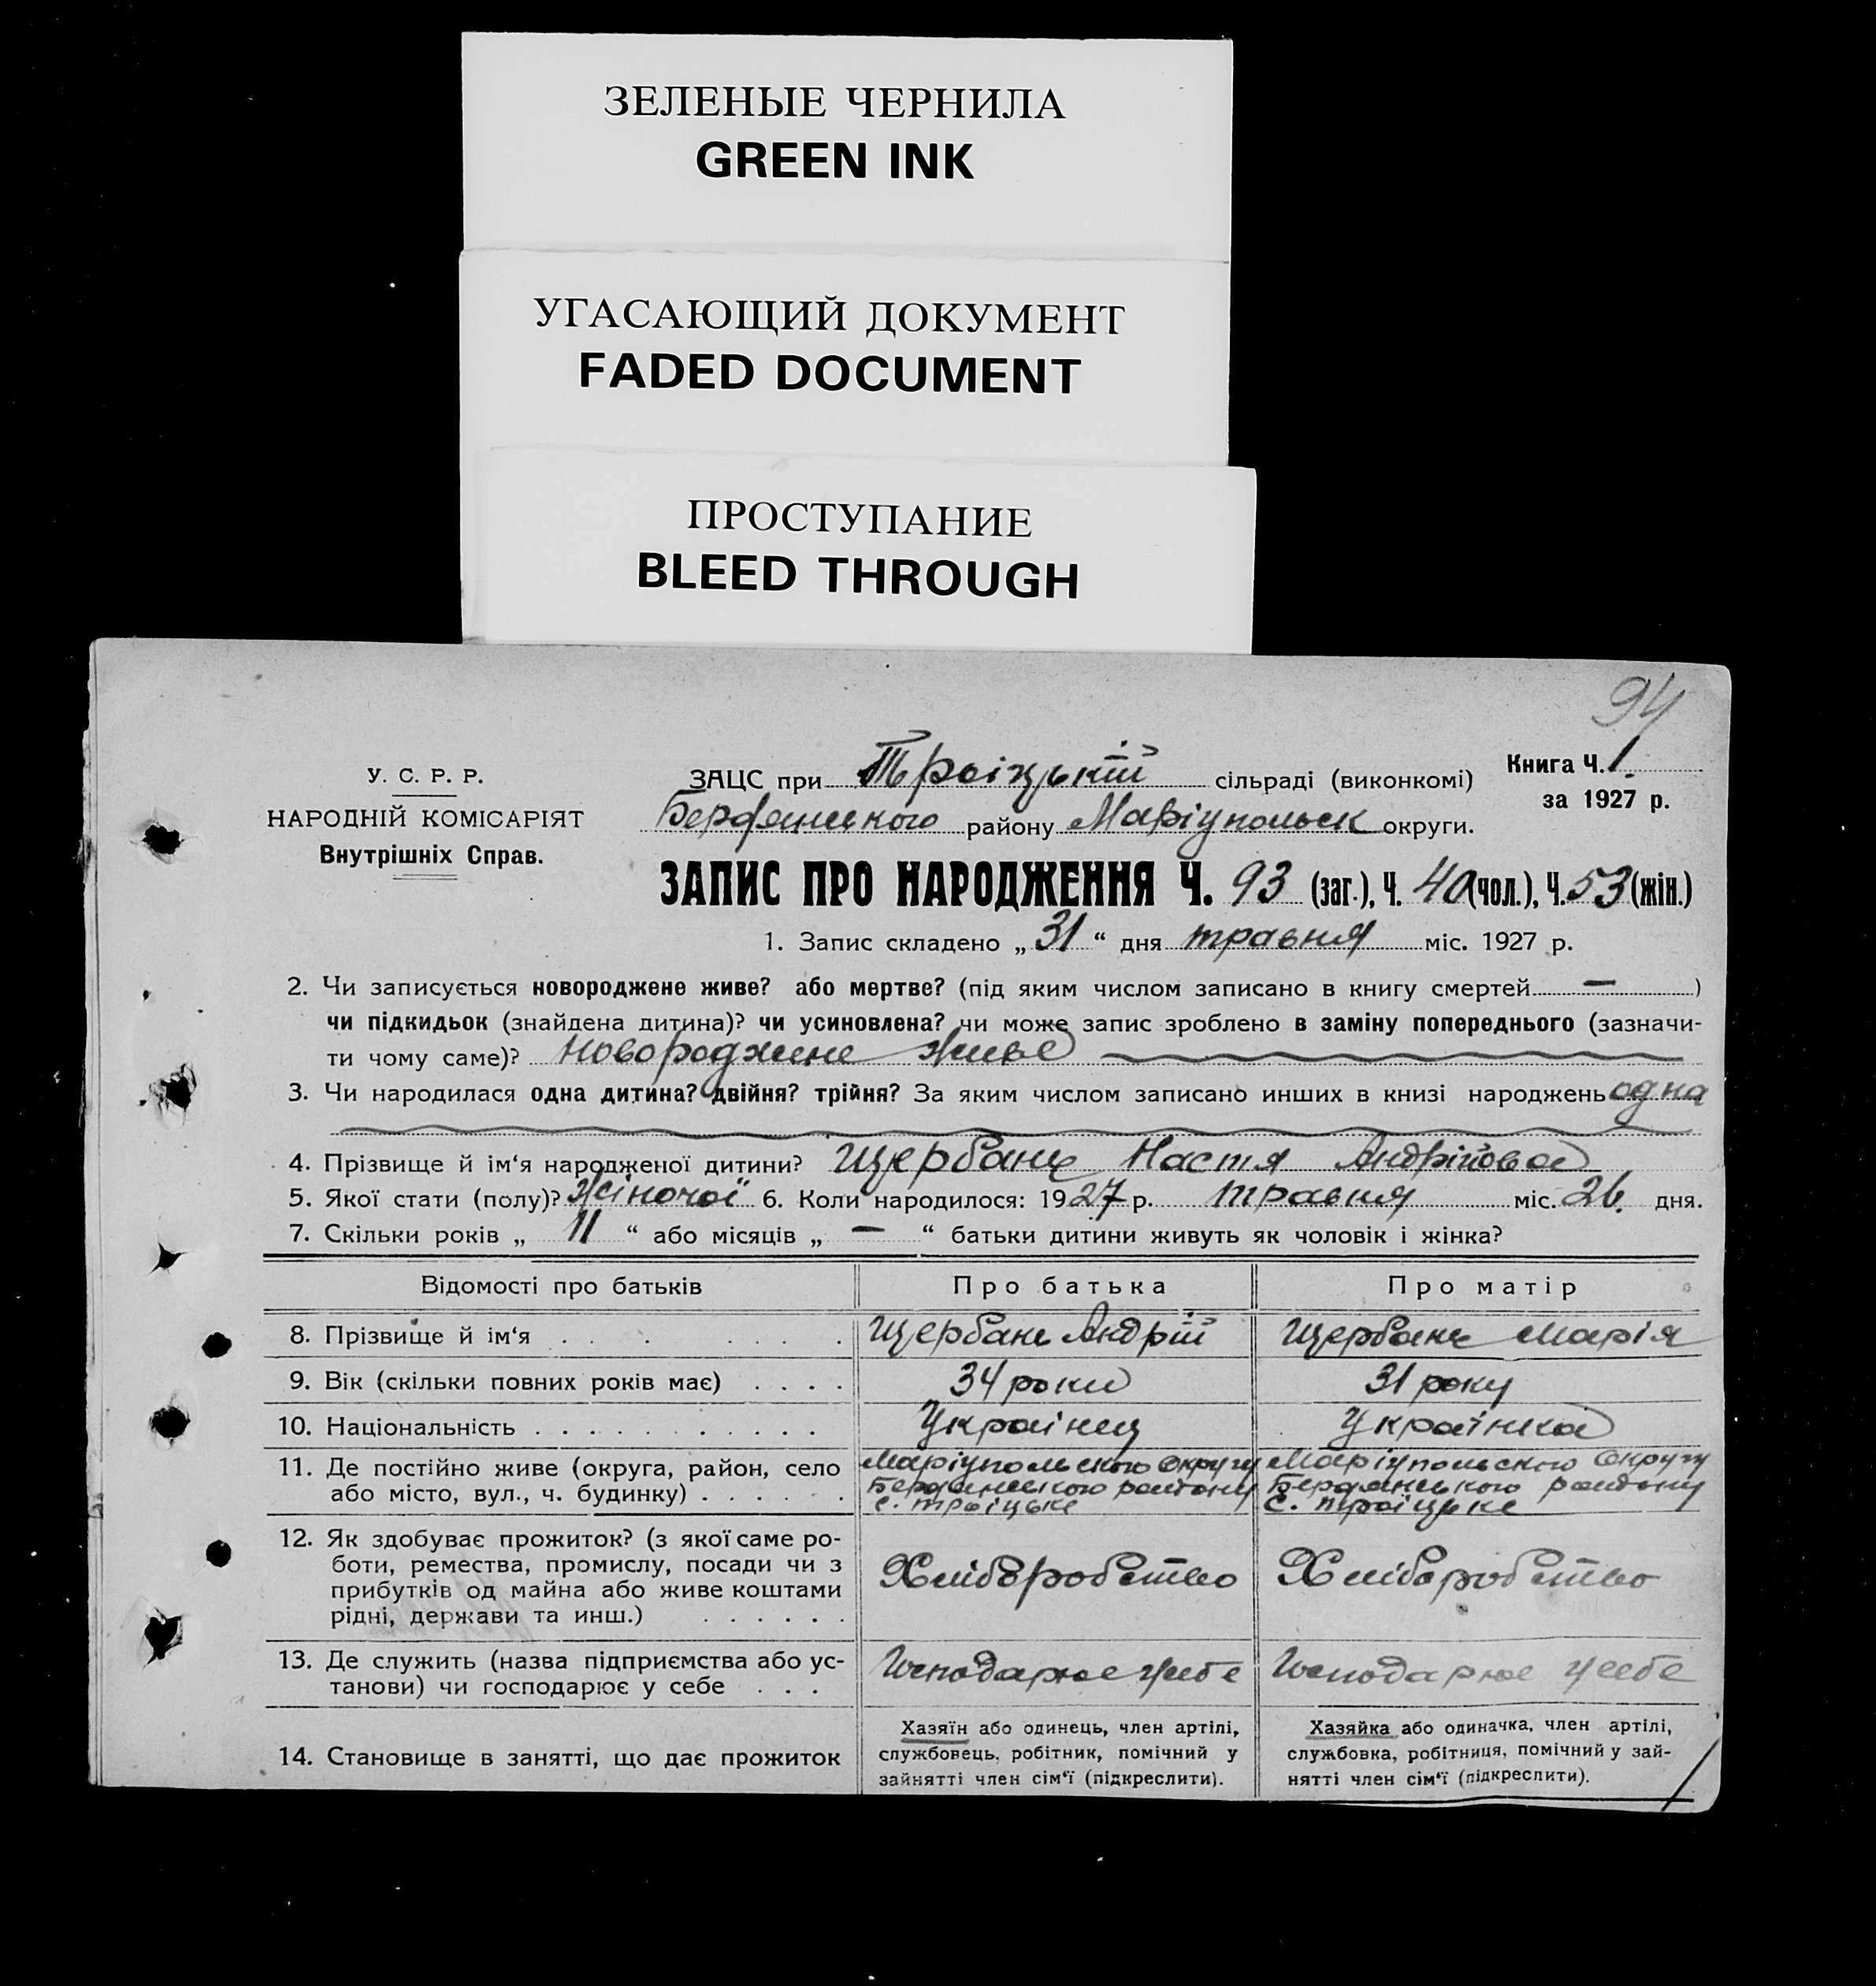 ЗЕЛЕНЫЕ ЧЕРНИЛА
GREEN INK
УГАСАЮЩИЙ ДОКУМЕНТ
FADED DOCUMENT
ПРОСТУПАНИЕ
BLEED THROUGH
94
У. С. Р. Р.
НАРОДНІЙ КОМІСАРІЯТ
Внутрішніх Справ.
ЗАЦС при Троіцькій сільраді (виконкомі)
Книга Ч. 1
за 1927 р.
Бердянського району Маріупольск округи.
ЗАПИС ПРО НАРОДЖЕННЯ Ч. 93 (заг.), Ч. 40 (чол.), Ч. 53 (жін.)
1. Запис складено „ 31 “ дня травня міс. 1927 р.
2. Чи записується новороджене живе? або мертве? (під яким числом записано в книгу смертей — )
чи підкидьок (знайдена дитина)? чи усиновлена? чи може запис зроблено в заміну попереднього (зазначи-
ти чому саме)? Новороджене живе
3. Чи народилася одна дитина? двійня? трійня? За яким числом записано инших в книзі народжень одна
4. Прізвище й ім‘я народженої дитини? Щербань Настя Андрійова
5. Якої стати (полу)? Жіночої 6. Коли народилося: 1927 р. травня міс. 26. дня.
7. Скільки років „ 11 “ або місяців „ — “ батьки дитини живуть як чоловік і жінка?
Відомості про батьків Про батька Про матір
8. Прізвище й ім‘я Щербань Андрій Щербань Марія
9. Вік (скільки повних років має) 34 роки 31 року
10. Національність Украінец Украінка
11. Де постійно живе (округа, район, село
або місто, вул., ч. будинку)
Маріупольского Округу
Бердянського району
с. Троіцьке
Маріупольского Округу
Бердянського району
с. Троіцьке
12. Як здобуває прожиток? (з якої саме ро-
боти, ремества, промислу, посади чи з
прибутків од майна або живе коштами
рідні, держави та инш.)
Хліборобство
Хліборобство
13. Де служить (назва підприємства або ус-
танови) чи господарює у себе
Господарює у себе
Господарює у себе
14. Становище в занятті, що дає прожиток
Хазяїн або одинець, член артілі,
службовець, робітник, помічний у
зайнятті член сім‘ї (підкреслити).
Хазяйка або одиначка, член артілі,
службовка, робітниця, помічний у зай-
нятті член сім‘ї (підкреслити).